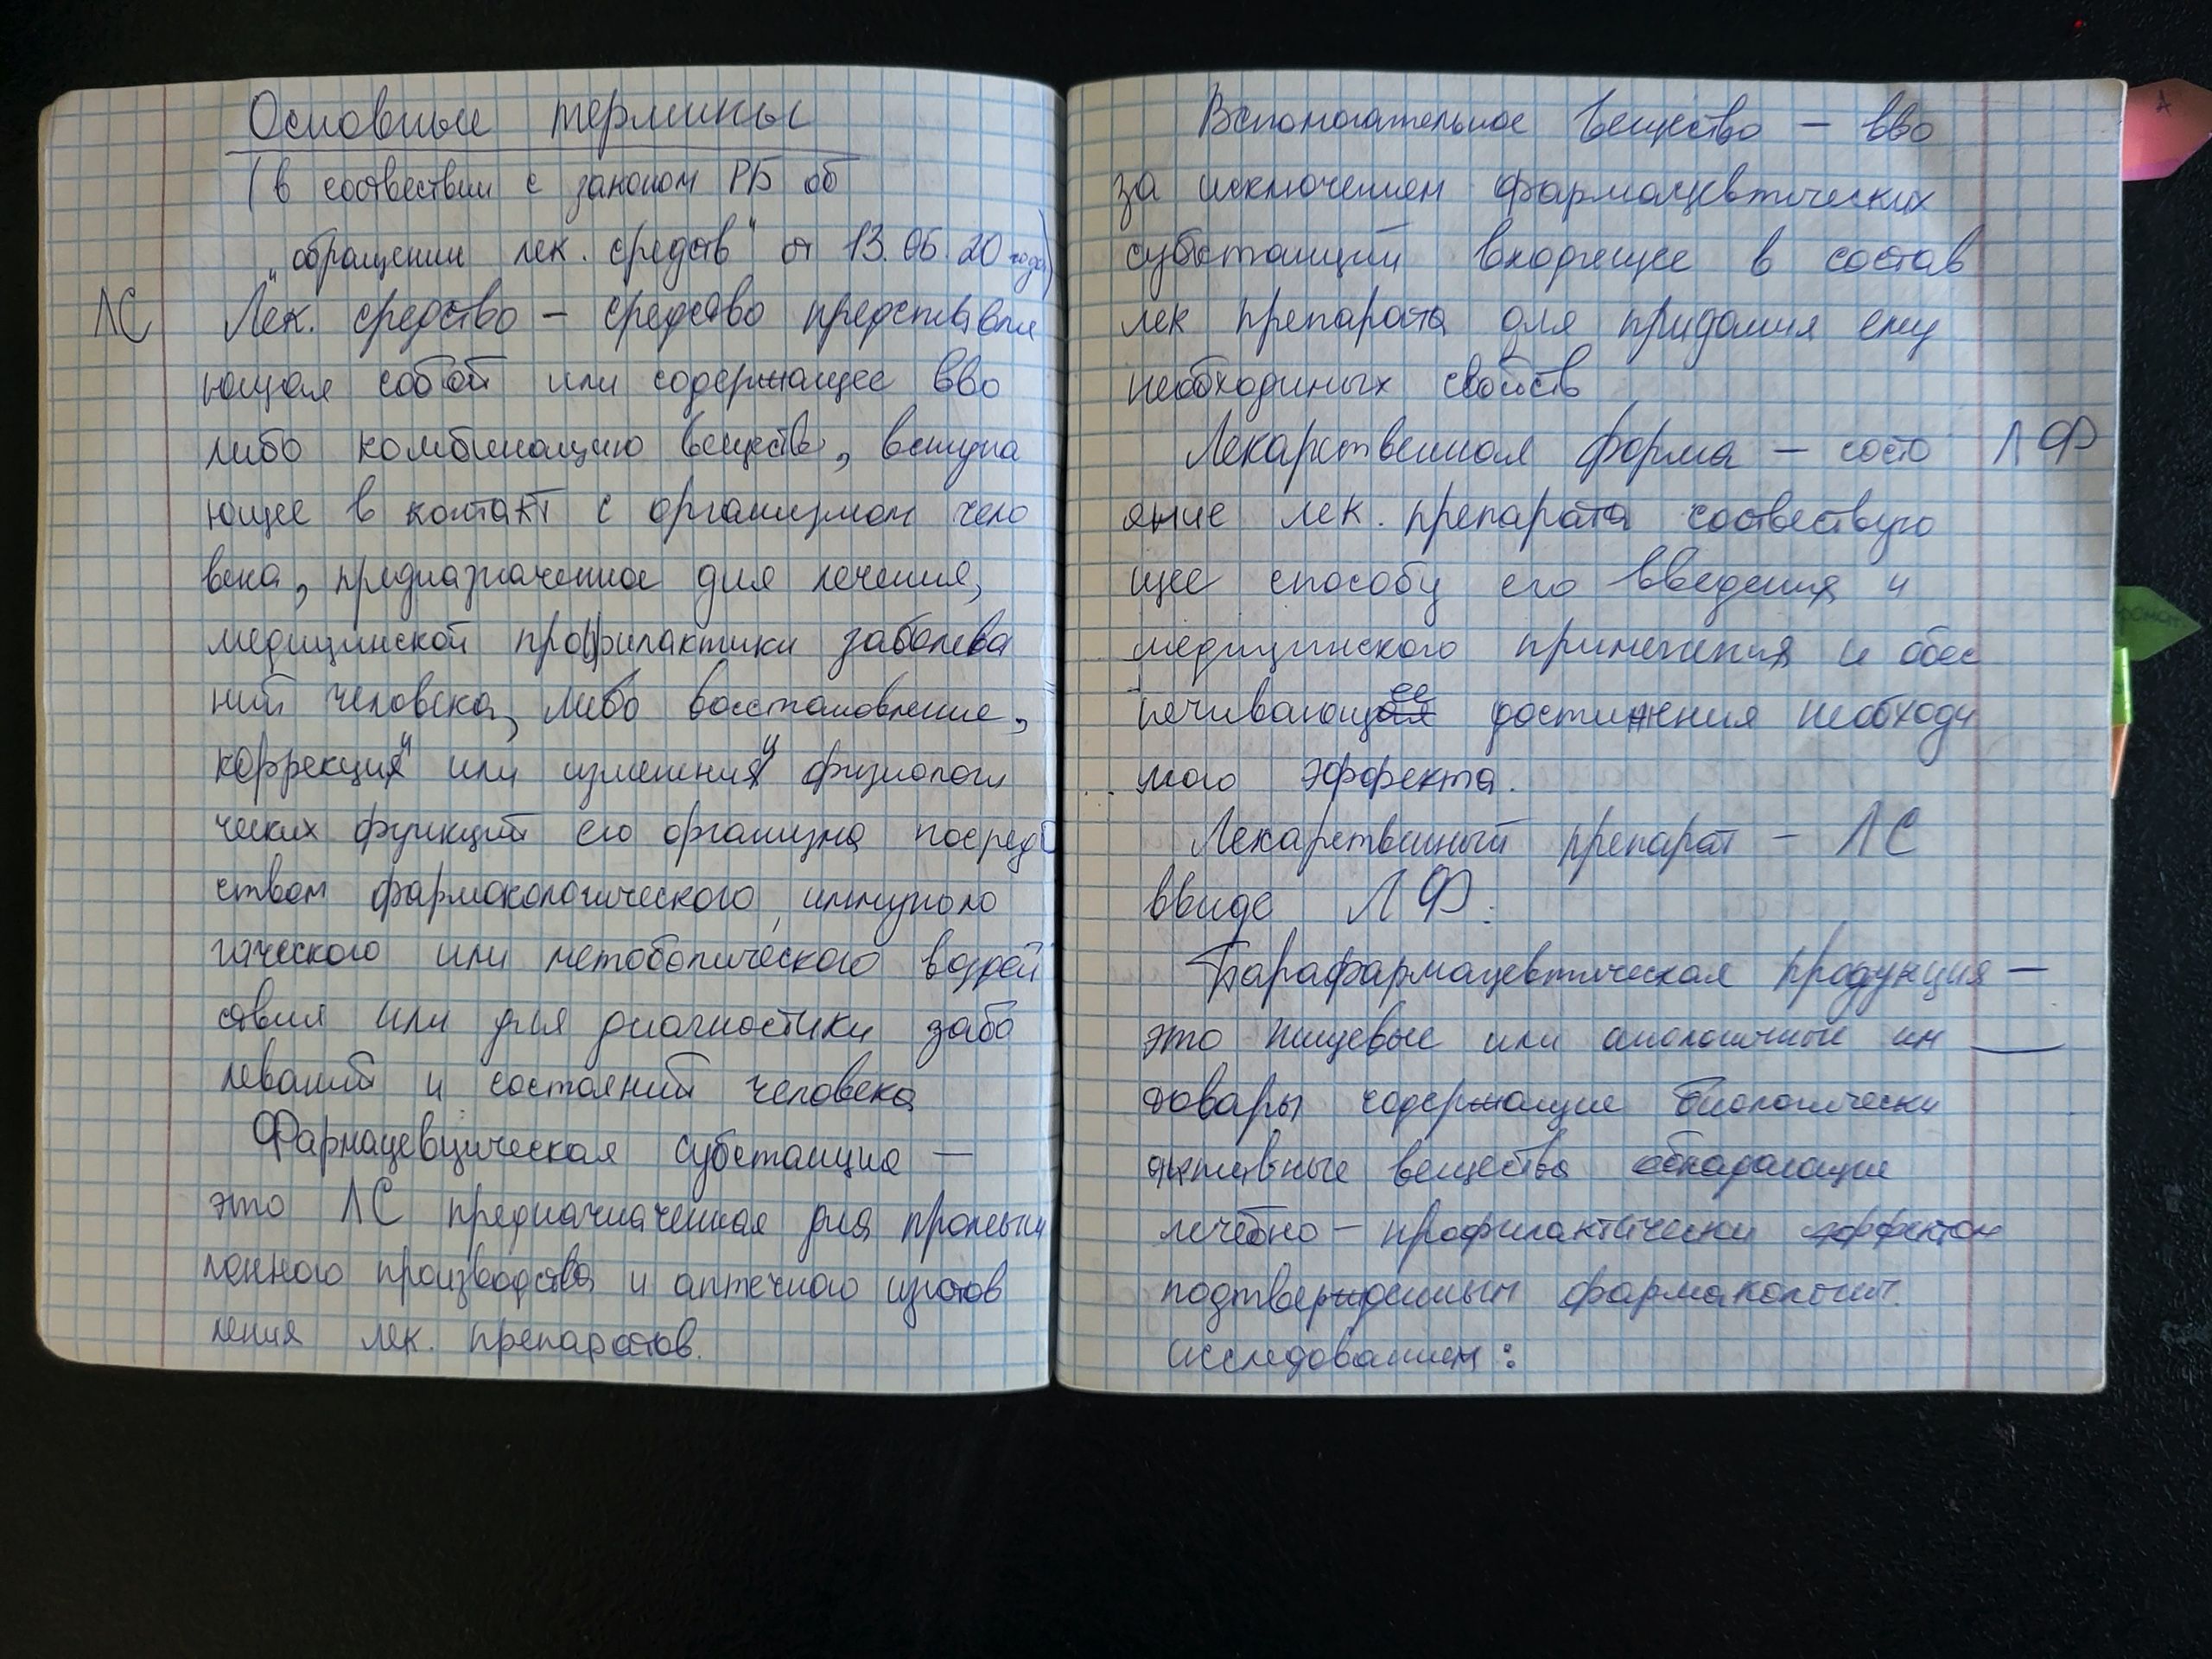 Основные термины
(в соотвествии с законом РБ об
„обращении лек. средств" от 13.06.20 года)
ЛС Лек. средство – средство представля
ющая собой или содержащее вво
либо комбинацию веществ, вступа
ющее в контакт с организмом чело
века, предназначенное для лечения,
медицинской профилактики заболева
ний человека, либо восстановление,
коррекции или изменнии физиологи
ческих функций его организма посред
ством фармокологического, иммуноло
гического или метоболического воздей
ствия или для диагностики забо
леваний и состояний человека
Фармацевцическая субстанция –
это ЛС предназначенная для промыш
ленного производства и аптечного изготов
ления лек. препаратов.
Вспомогательное вещество – вво
за исключением фармацевтических
субстанций входящее в состав
лек препарата для придания ему
необходимых свойств
Лекарственная форма – состо ЛФ
яние лек. препарата соотвествую
щее способу его введения и
медицинского применения и обес
печивающее достижения необходи
мого эффекта.
Лекарственный препарат – ЛС
ввиде ЛФ.
Парафармацевтическая продукция –
это пищевые или аналогичные им
товары содержащие биологически
активные вещества обладающие
лечебно – профилактически эффектом
подтвержденным фармакологич.
исследованием: